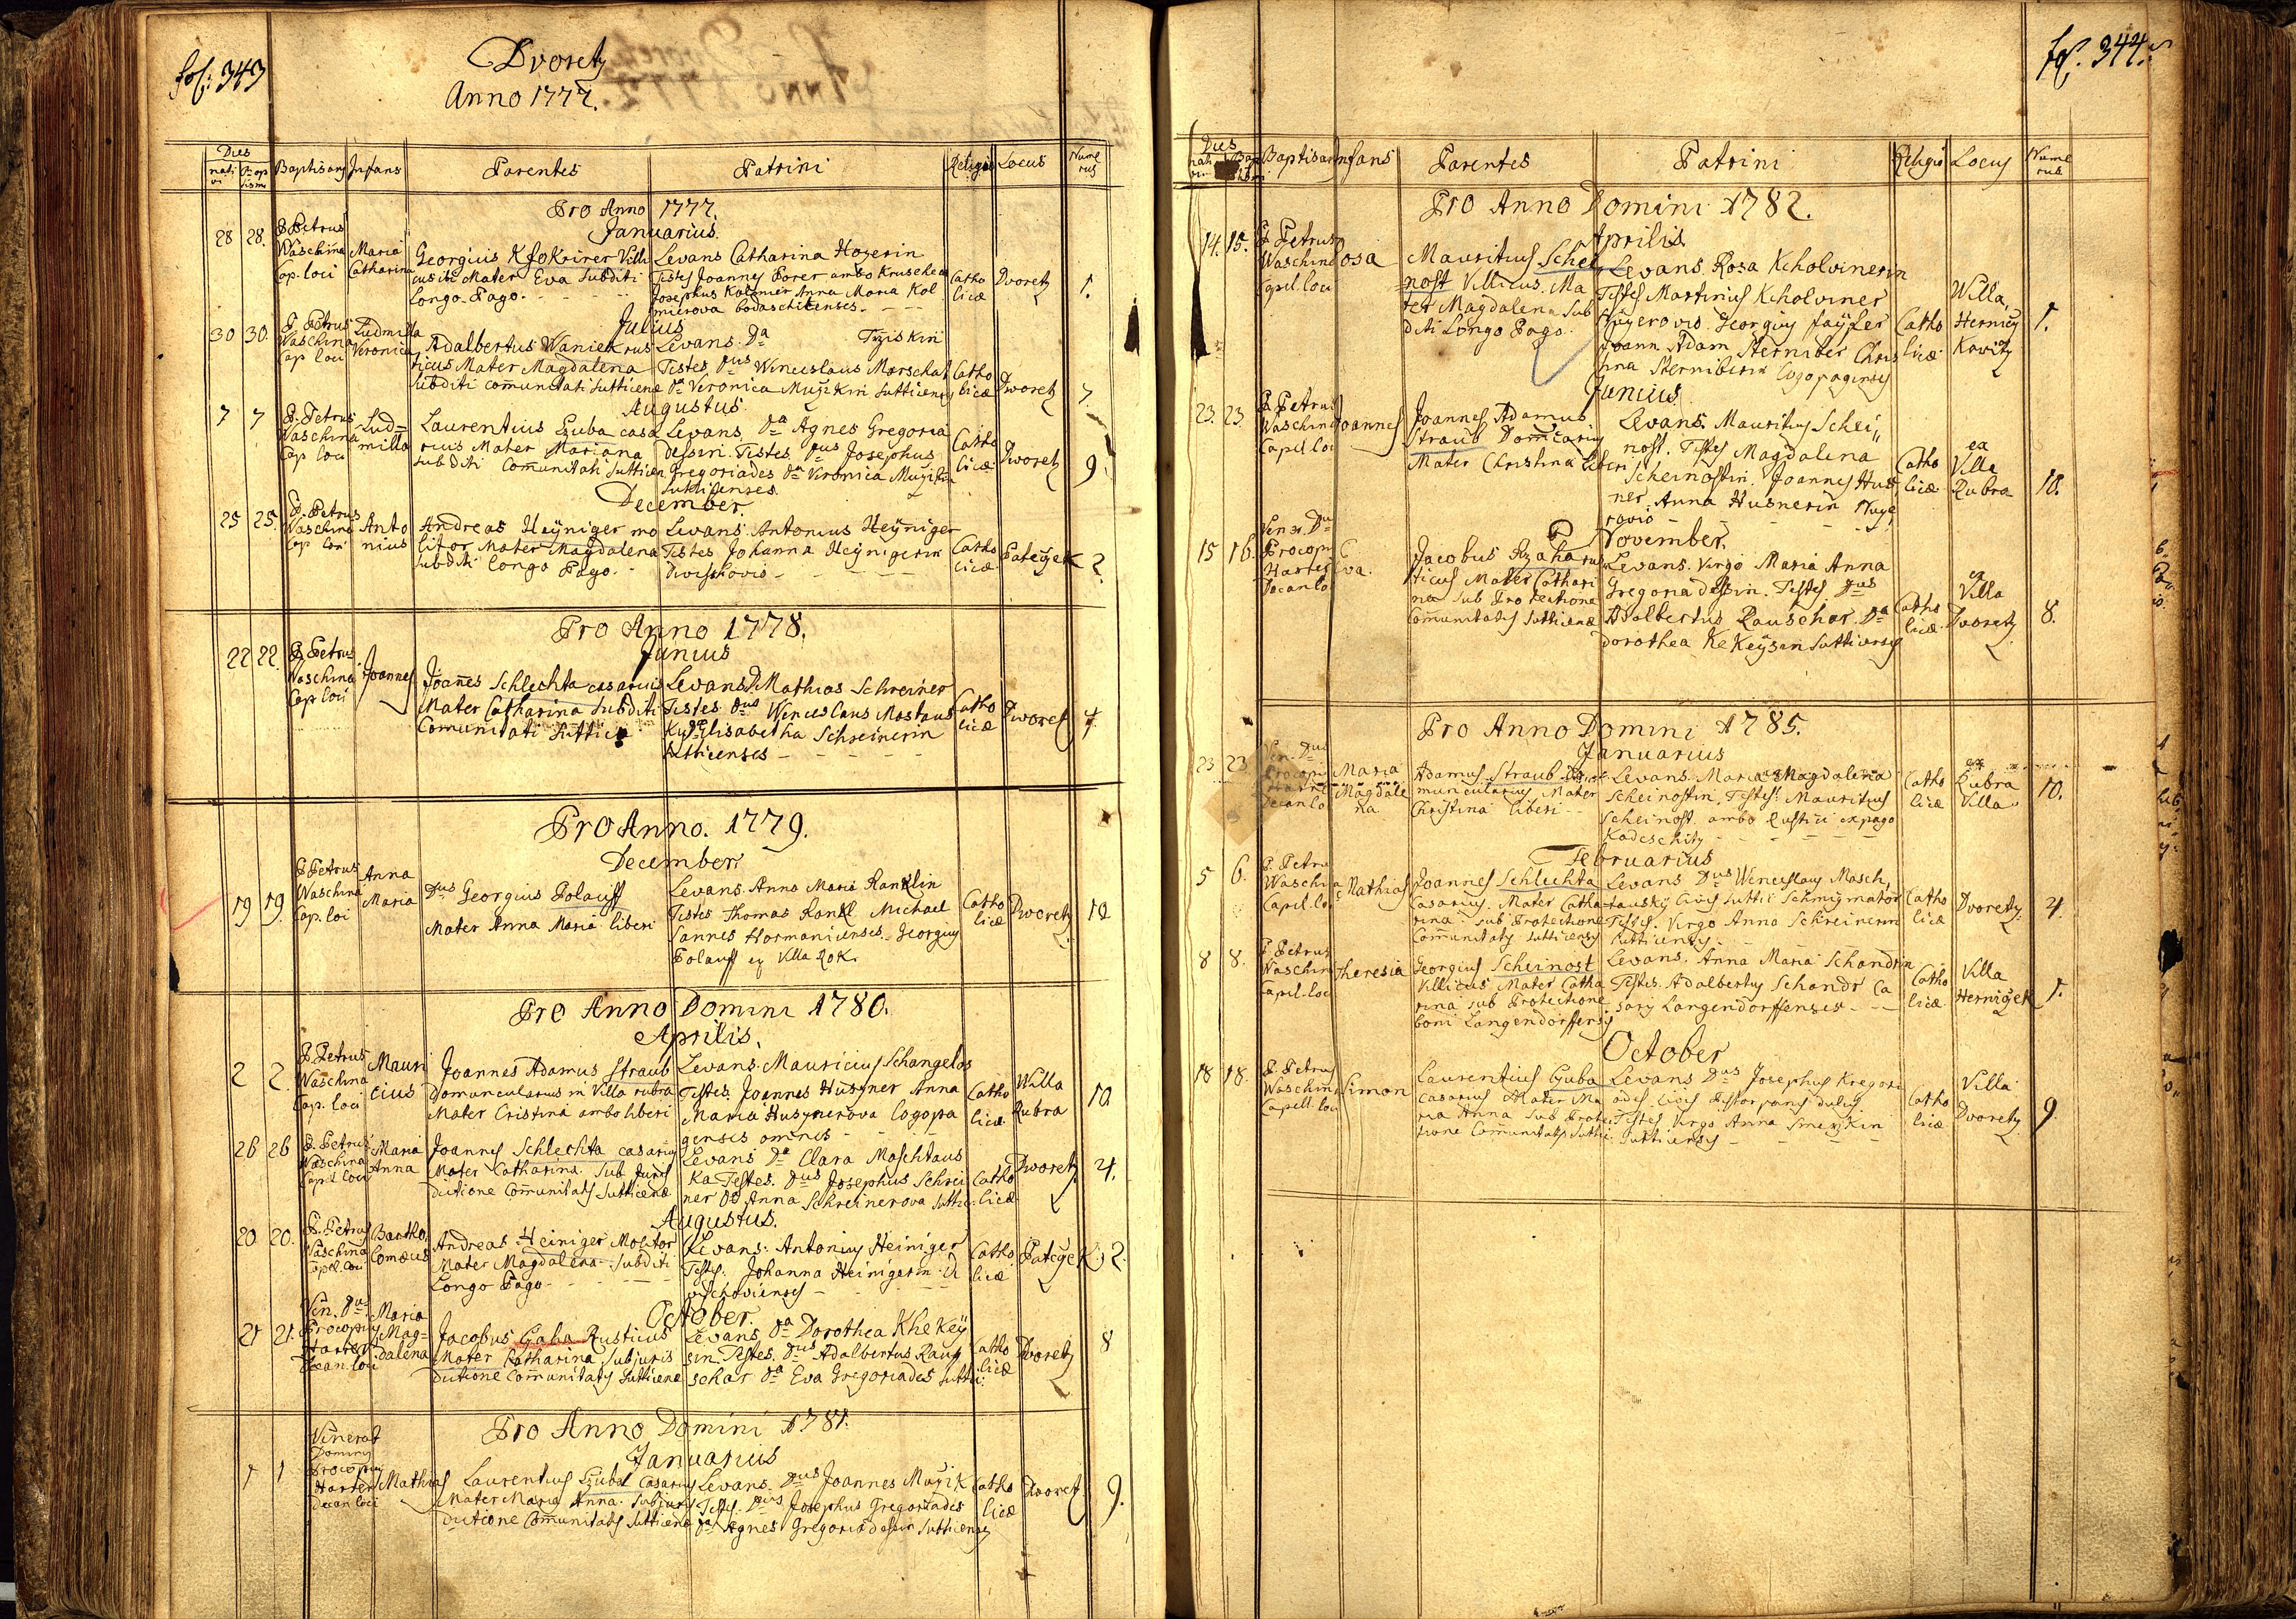 fol: 343
Dvoretz
Anno 1777.
Dies
nati
vi
Bap
tismi
Baptisans
Infans
Parentes
Patrini
Religio
Locus
Nume
rus
Pro Anno 1777.
Januarius.
28 28. P Petrus
Waschina
Cap. loci
Maria
Catharina
Georgius Villi
cus Mater Eva Subditi
Longo Pago.
Levans Catharina
Testes Joannes ambo
Josephus Anna Maria Kol
mierova
Catho
licæ
Dvoretz
1.
Julius
30 30. P Petrus
Waschina
Cap loci
Ludmilla
Veronica
Adalbertus Waniek rus
ticus Mater Magdalena
Subditi communitati Sutticenæ
Levans. Da
Testes. Dus Wenceslaus Marschat
Da Veronica Sutticens
Catho
licæ
Dworetz
7.
Augustus
7 7 P. Petrus
Waschina
Cap loci
Lud=
milla
Laurentius casa
rius Mater Mariana
subditi Comunitati Sutticen
Levans. Da Agnes Gregoria
dessin. Testes Dus Josephus
Gregoriades Da Veronica
Sutticenses
Catho
licæ
Dworetz
9.
December.
25 25. P. Petrus
Waschina
Cap loci
Anto
nius
Andreas Heÿniger mo
litor Mater Magdalena
subditi Longo Pago.
Levans. Antonius Heÿniger
Testes Johanna Heÿnigerin
Catho
licæ
Pateÿek
2.
Pro Anno 1778.
Junius
22 22. P Petrus
Waschina
Cap loci
Joannes
Joannes Schlechta casarius
Mater Catharina Subditi
Comunitati
Levans D Mathias Schreiner
Testes Dus Wenceslaus Mastaus
Ky Da Elisabetha Schreinerin
Sutticenses
Catho
licæ
Dworetz
4.
Pro Anno. 1779.
December
19 19. P Petrus
Waschina
Cap. loci
Anna
Maria
Dus Georgius Polauff
Mater Anna Maria liberi
Levans. Anna Maria Ranklin
Testes Thomas Rankl Michael
Sannes Hormanicenses. Georgius
Polauff ex Villa Rok.
Catho
licæ
Dworetz
10
Pro Anno Domini 1780.
Aprilis.
2 2. P. Petrus
Waschina
Cap. loci
Mauri
cius
Joannes Adamus Straub
Domuncularius in Villa rubra
Mater Cristina ambo liberi
Levans. Mauricius Schangelos
Testes. Joannes Husner Anna
Maria Husnerova Logopa
genses omnes
Catho
licæ
Willa
Rubra
10
26 26 P. Petrus
Waschina
Capel loci
Maria
Anna
Joannes Schlechta casarius
Mater Catharina. Sub Juris
dictione Communitatis Sutticenæ
Levans Da Clara Maschtaus
Ka Testes. Dus Josephus Schrei
ner Da Anna Schreinerova Suttic.
Catho
licæ
Dworetz
4.
Augustus.
20 20. P. Petrus
Waschina
Capel. loci
Bartho
lomæus
Andreas Heiniger Molitor
Mater Magdalena subditi
Longo Pago
Levans: Antonius Heiniger
Testes. Johanna Heinigerin
Catho
licæ
Pateÿek
2.
October.
21 21. Ven. Dus
Procopius
Harter
Decan. loci
Maria
Mag=
dalena
Jacobus Gaha Rusticus
Mater Catharina Subjuris
dictione Communitatis Sutticenæ
Levans Da Dorothea KheKeÿ
sin. Testes. Dus Adalbertus Rau
schar Da Eva Gregoriades Suttic:
Catho
licæ
Dvoretz
8
Pro Anno Domini 1781.
Januarius
1 1 Venerab
Dominus
Procopius
Harter
Decan loci
Mathias
Laurentius Casarius
Mater Maria Anna. Subjuris
dictione Communitatis Sutticenæ
Levans. Dus Joannes
Testes. Dus Josephus Gregoriades
Da Agnes Gregoriadessin Sutticens
Catho
licæ
Dvoretz
9.
fol. 344.
Dies
nati
vi
Baptisans
Infans
Parentes
Patrini
Religio
Locus
Nume
rus
Pro Anno Domini 1782.
Aprilis
14. 15. P. Petrus
Waschina
Capel. loci
Rosa
Mauritius Schei
=nost Villicus. Ma
ter Magdalena Sub
diti Longo Pago.
Levans. Rosa Kcholvinerin
Testes Martinus Kcholviner
Georgius
Joann Adam Sterniber Chris
tina Sterniberin Logopagenses
Catho
licæ
Willa
Herniÿ
Kovitz
1.
Junius
23. 23 P. Petrus
Waschina
Capel loci
Joannes
Joannes Adamus
Straub Domicarius
Mater Christina liberi
Levans. Mauritius Schei„
nost. Testes Magdalena
Scheinostin. Joannes Hus
ner Anna Husnerin
Catho
licæ
ea
Villa
Rubra
10.
November.
15 16. Ven. Dus
Procopi
Harter
Decan lo
Eva.
Jacobus rus
ticus Mater Cathari
na sub Protectione
Communitatis Sutticenæ
Levans. Virgo Maria Anna
Gregoriadessin. Testes. Dus
Adalbertus Rauschar Da
Dorothea KeKeÿsin Sutticenses
Catho
licæ
ex
Villa
Dvoretz
8.
Pro Anno Domini 1785.
Januarius
23 23 Ven. Dus
Procopi
Harter
Decan lo
Maria
Magdale
na
Adamus Straub Do
muncularius Mater
Christina liberi
Levans. Maria Magdalena
Scheinostin. Testes. Mauritius
Scheinost. ambo Rustici ex pago
Kadeschitz
Catho
licæ
ex
Rubra
Villa
10.
Februarius
5 6. P. Petrus
Waschina
Capel. lo
Mathias
Joannes Schlechta
Casarius. Mater Catha
rina. sub Protectione
Communitatis Sutticensis
Levans Dus Wenceslaus Masch,
tausky Civis Suttic Schmigmator
Testes. Virgo Anna Schreinerin
Sutticensis
Catho
licæ
Dvoretz.
4.
8 8. P. Petrus
Waschina
Capel. loci
Theresia
Georgius Scheinost
Villicus Mater Catha
rina sub Protectione
boni Langendorffensis
Levans. Anna Maria Schandrin
Testes. Adalbertus Schandr Ca
sarÿ Langendorffenses
Catho
licæ
Villa
Herniÿek
1.
October
18 18. P. Petrus
Waschina
Capell. loci
Simon
Laurentius Czuba
casarius Mater Ma
ria Anna sub Protec
tione Communitatis Suttic.
Levans Dus Josephus Kregori
ades civis Pistor panis dulcis
Testes Virgo Anna
Sutticensis
Catho
licæ
Villa
Dvoretz
9.